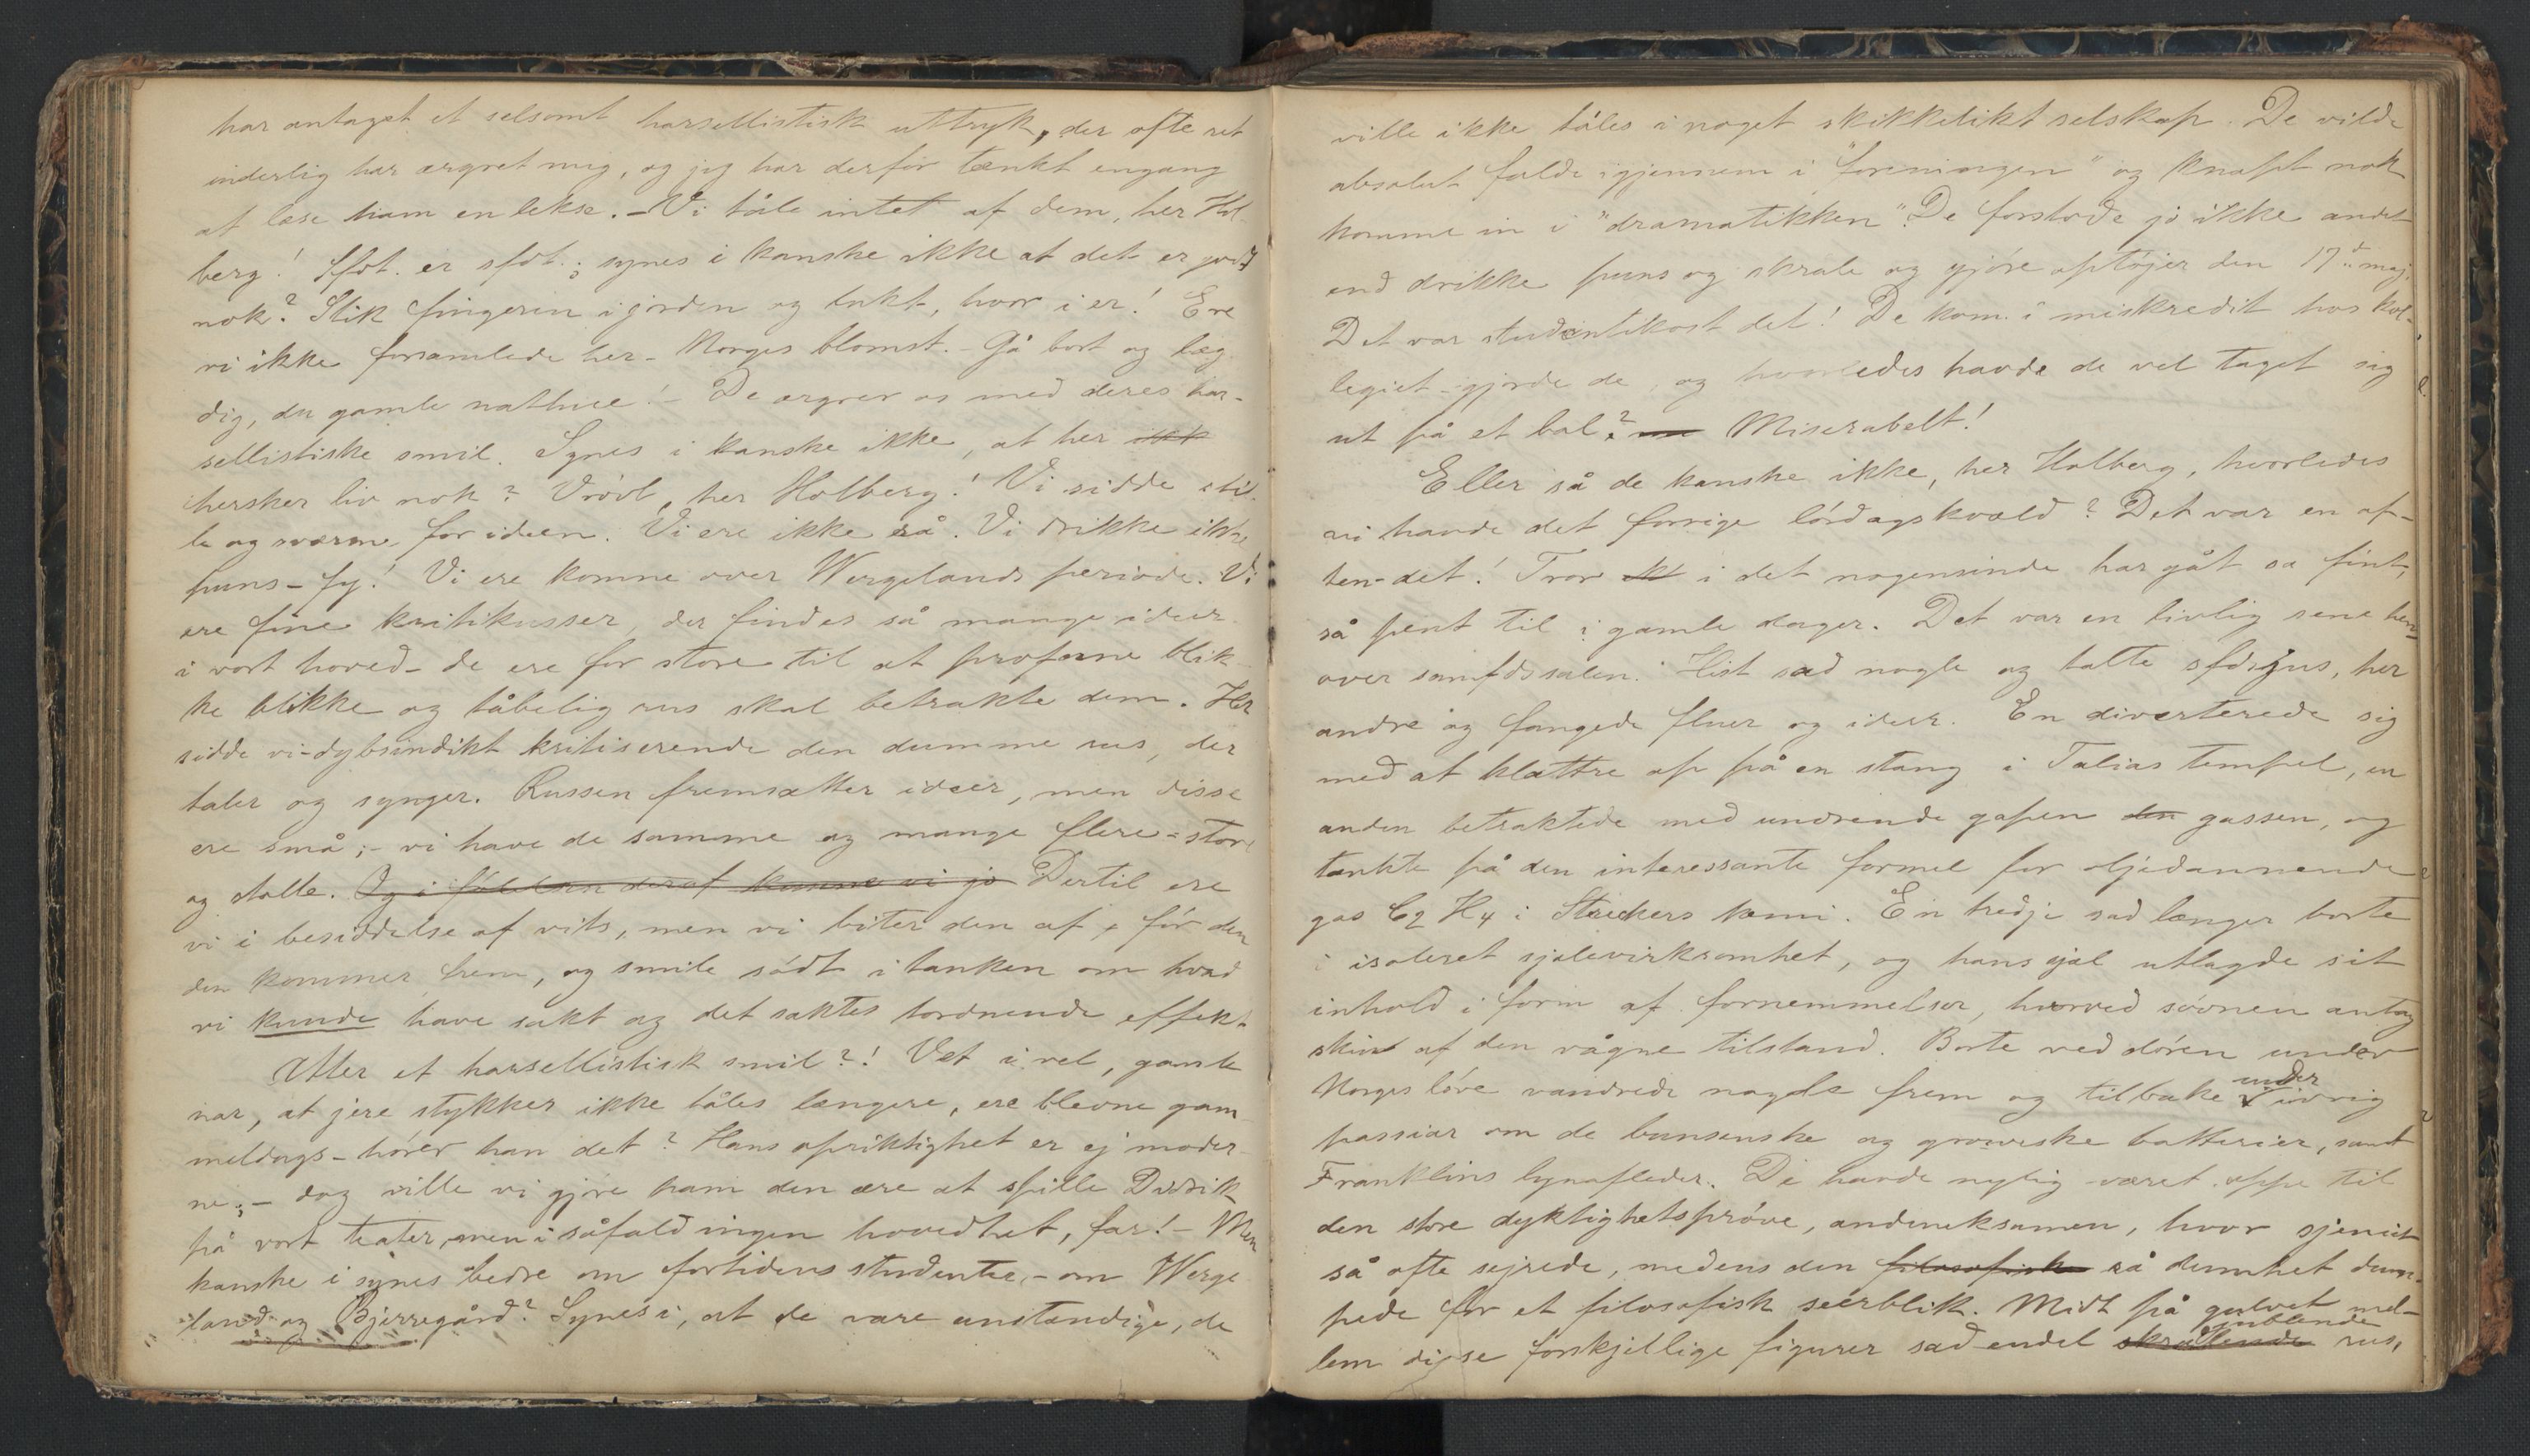 har antaget et selsomt harsellistisk uttryk, der ofte ret
inderlig har ærgret mig, og jeg har derfor tænkt engang
at læse ham en lekse. – Vi tåle intet af dem, her Hol-
berg! Spøt. er spøt.; synes i kanske ikke at det er godt
nok? Stik fingeren i jorden og lukt, hvor i er! Ere
vi ikke forsamlede her – Norges blomst. – Gå bort og læg
dig, du gamle nathue! – De ærgrer os med deres har-
sellistiske smil. Synes i kanske ikke, at her ikk
hersker liv nok? Vrövl, her Holberg! Vi sidde stil-
le og sværme for ideen. Vi ere ikke rå. Vi drikke ikke
puns – fy! Vi ere komne over Wergelands periode. Vi
ere fine kritikusser, der findes så mange ideer
i vort hoved – de ere for store til at profane blik-
ke blikke og tåbelig rus skal betrakte dem. Her
sidde vi – dybsindikt kritiserende den dumme rus, der
taler og synger. Russen fremsætter ideer, men disse
ere små; – vi have de samme og mange flere – store
og stolte. Og i følelsen deraf kunne vi jo Dertil ere
vi i besiddelse af vits, men vi biter den af, för den
den kommer frem, og smile södt i tanken om hvad
vi kunde have sakt og det saktes tordnende effekt
Atter et harsellistisk smil?! Vet i vel, gamle
nar, at jere stykker ikke tåles længere, ere blevne gam-
meldags – hörer han det? Hans opriktighet er ej moder-
ne; – dog ville vi gjöre ham den ære at spille Didrik
på vort teater, men i såfald ingen hovedhet, far! – Men
kanske i synes bedre om fortidens studenter, – om Werge
land og Bjerregård? Synes i, at de vare anstændige, de
ville ikke tåles i noget skikkelikt selskap. De vilde
absolut falde igjennem i "foreningen" og knapt nok
komme in i "dramatikken". De forstode jo ikke andet
end drikke puns og skråle og gjöre optöjer den 17de maj.
Det var studentikost det! De kom i miskredit hos kol-
legiet – gjorde de, og hvorledes havde de vel taget sig
ut på et bal? Miserabelt!
Eller så de kanske ikke, her Holberg, hvorledes
vi havde det forrige lördagskvæld? Det var en af-
ten – det! Tror i det nogensinde har gåt så fint,
så pent til i gamle dager. Det var en livlig sene hen-
over samfdssalen. Hist sad nogle og talte spörjus, her
andre og fangede fluer og ideer. En diverterede sig
med at klattre op på en stang i Talias tempel, en
anden betraktede med undrende gapen den gassen, og
tænkte på den interessante formel for oljedannende
gas C2 H4 i Streckers kemi. En tredje sad længer borte
i isoleret sjælevirksomhet, og hans sjæl utlagde sit
inhold i form af fornemmelser, hvorved sövnen antog
skin af den vågne tilstand. Borte ved dören under
Norges löve vandrede nogle frem og tilbake under ivrig
passiar om de bunsenske og groweske batterier, samt
Franklins lynafleder. De havde nylig været oppe til
den store dyktighetspröve, andeneksamen, hvor sjeniet
så ofte sejrede, medens den filosofiske rå dumhet dum-
pede for et filosofisk seerblik. Midt på gulvet mel-
lem disse forskjellige figurer sad endel skrålende jublende rus,